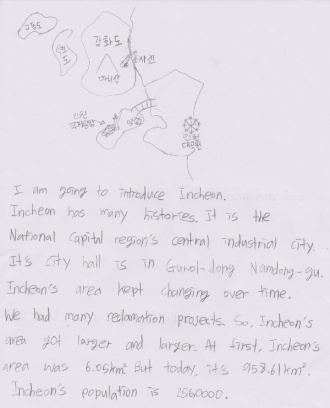 강화도
마니산
I am going to introduce Incheon.
Incheon has many histories. It is the
National Capital region's central industrial city.
It's city hall is in Guwol-dong Namdong-gu.
Incheon's area kept changing over time.
We had many reclamation projects. So, Incheon's
area got larger and larger. At first, Incheon's
area was 6.05km² But today, it's 958.61km².
Incheon's population is 2560000.